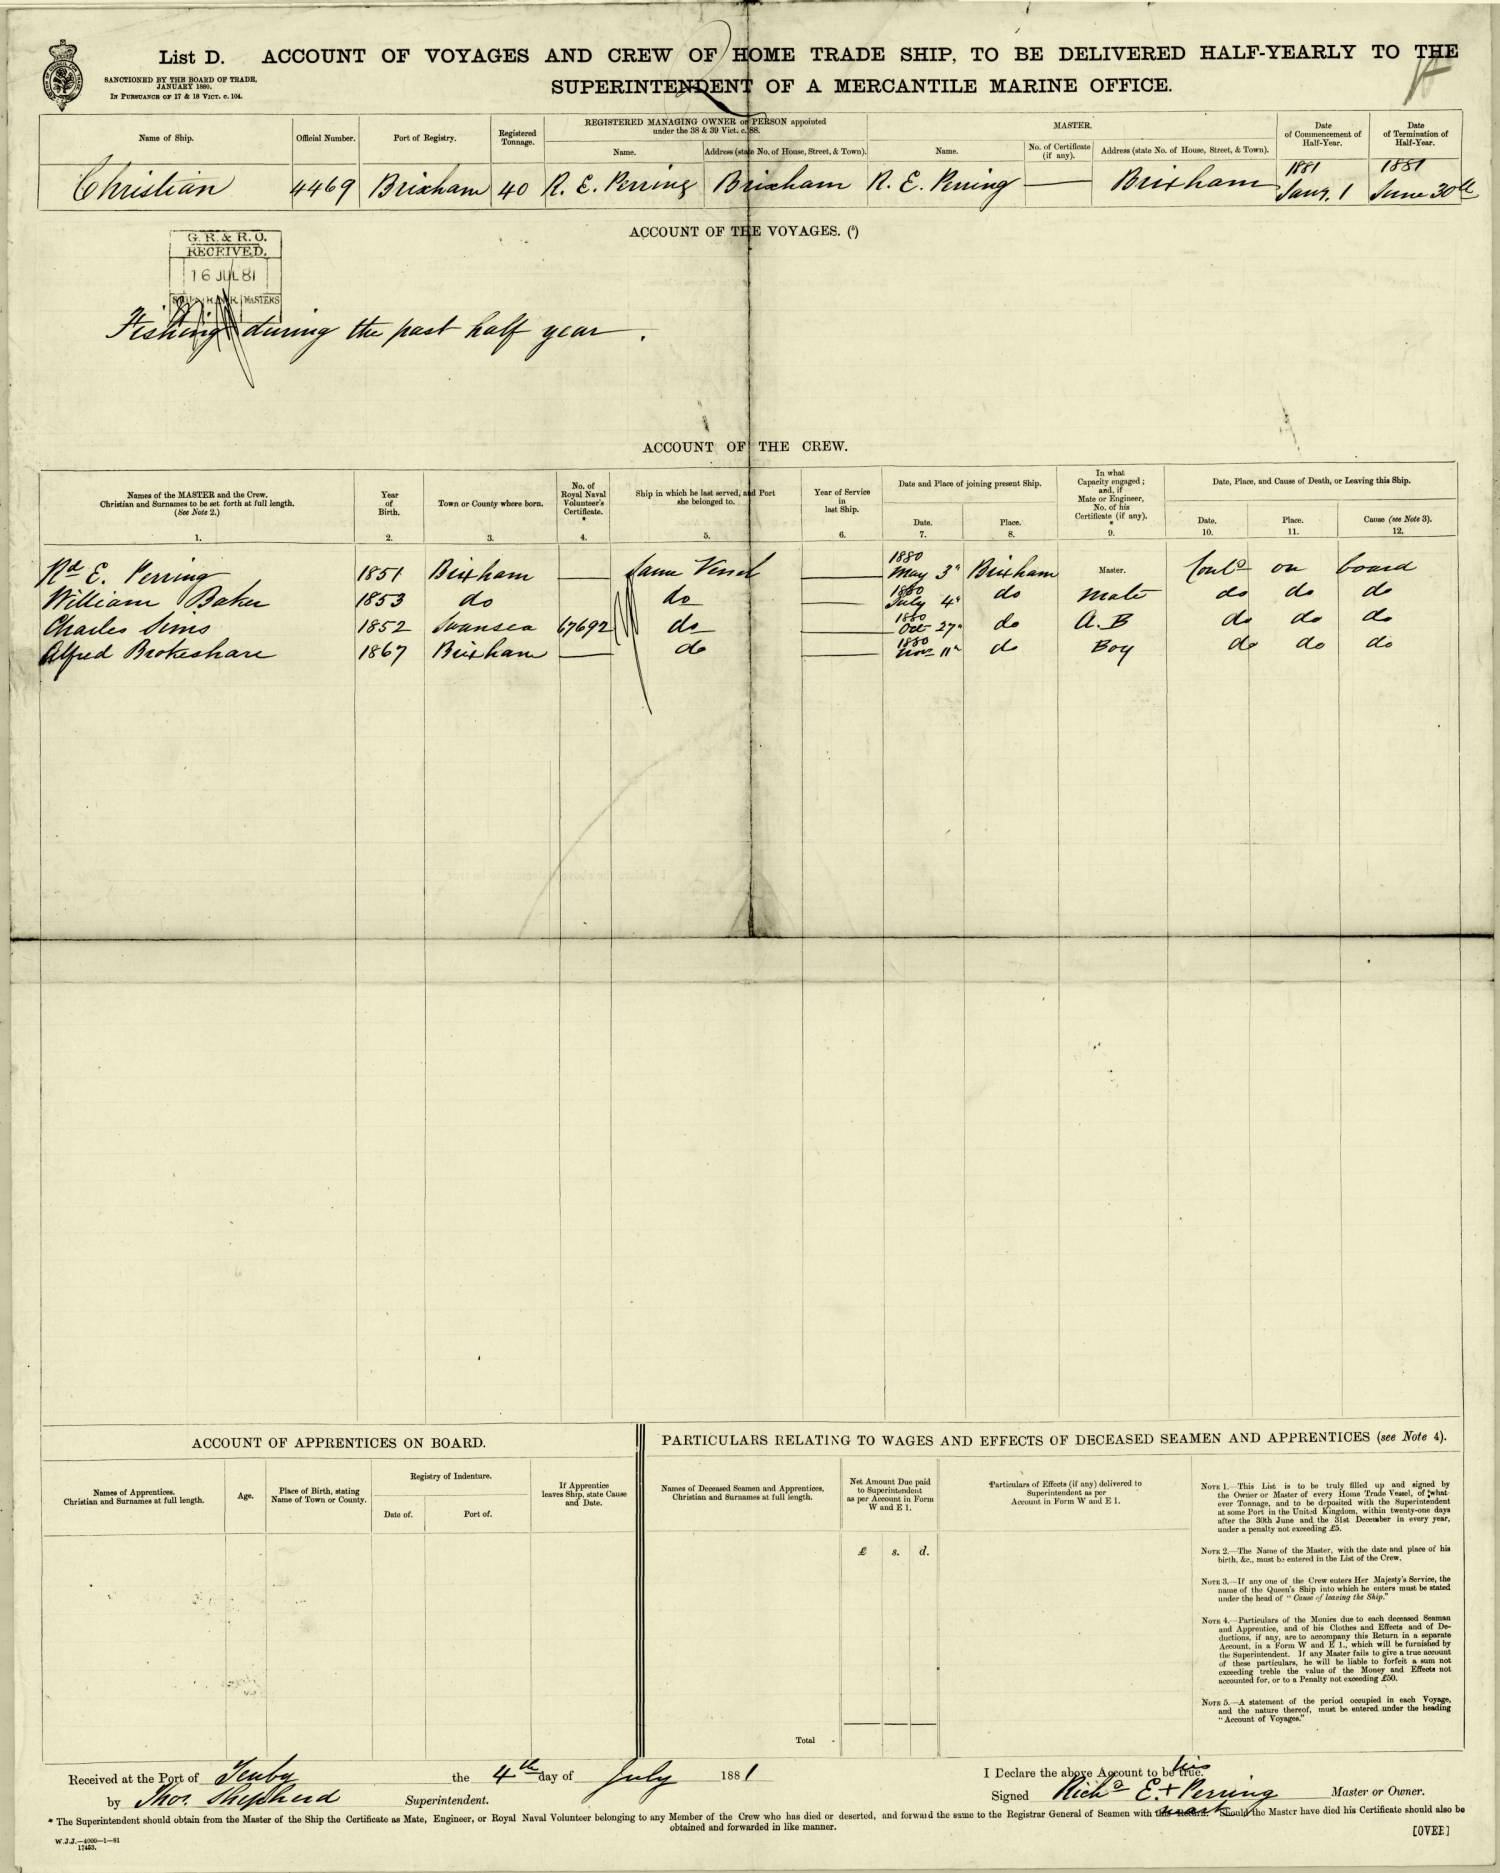 List D. ACCOUNT OF VOYAGES AND CREW OF HOME TRADE SHIP, TO BE DELIVERED HALF-YEARLY TO THE
SUPERINTENDENT OF A MERCANTILE MARINE OFFICE.
SANCTIONED BY THE BOARD OF TRADE,
JANUARY 1880.
IN PURSUANCE OF 17 & 18 VICT. c. 104.
Name of Ship.
Official Number.
Port of Registry.
Registered
Tonnage.
REGISTERED MANAGING OWNER or PERSON appointed
under the 38 & 39 Vict. c. 88.
Name.
Address (state No. of House, Street, & Town).
MASTER.
Name.
No. of Certificate
(if any).
Address (state No. of House, Street, & Town).
Date
of Commencement of
Half-Year.
Date
of Termination of
Half-Year.
Christian 4469 Brixham 40 R. E. Perring Brixham R. E. Perring — Brixham 1881 Jany. 1 1881 June 30th
ACCOUNT OF THE VOYAGES. (⁵)
G. R. & R. O.
RECEIVED.
16 JUL 81
MASTERS
Fishing during the past half year.
ACCOUNT OF THE CREW.
Names of the MASTER and the Crew.
Christian and Surnames to be set forth at full length.
(See Note 2.)
1.
Year
of
Birth.
2.
Town or County where born.
3.
No. of
Royal Naval
Volunteer's
Certificate.
*
4.
Ship in which he last served, and Port
she belonged to.
5.
Year of Service
in
last Ship.
6.
Date and Place of joining present Ship.
Date.
7.
Place.
8.
In what
Capacity engaged;
and, if
Mate or Engineer,
No. of his
Certificate (if any).
*
9.
Date, Place, and Cause of Death, or Leaving this Ship.
Date.
10.
Place.
11.
Cause (see Note 3).
12.
Rd E. Perring 1851 Brixham — Same Vessel — 1880 May 3d Brixham Master. Contd on board
William Baker 1853 do do — 1880 July 4h do Mate do do do
Charles Sims 1852 Swansea 67692 do — 1880 Oct 27h do A.B do do do
Alfred Brokeshare 1867 Brixham — do — 1880 Nov 11h do Boy do do do
ACCOUNT OF APPRENTICES ON BOARD.
Names of Apprentices.
Christian and Surnames at full length.
Age.
Place of Birth, stating
Name of Town or County.
Registry of Indenture.
Date of.
Port of.
If Apprentice
leaves Ship, state Cause
and Date.
PARTICULARS RELATING TO WAGES AND EFFECTS OF DECEASED SEAMEN AND APPRENTICES (see Note 4).
Names of Deceased Seamen and Apprentices,
Christian and Surnames at full length.
Net Amount Due paid
to Superintendent
as per Account in Form
W and E 1.
£ s. d.
Particulars of Effects (if any) delivered to
Superintendent as per
Account in Form W and E 1.
Total
NOTE 1.—This List is to be truly filled up and signed by
the Owner or Master of every Home Trade Vessel, of what-
ever Tonnage, and to be deposited with the Superintendent
at some Port in the United Kingdom, within twenty-one days
after the 30th June and the 31st December in every year,
under a penalty not exceeding £5.
NOTE 2.—The Name of the Master, with the date and place of his
birth, &c., must be entered in the List of the Crew.
NOTE 3.—If any one of the Crew enters Her Majesty's Service, the
name of the Queen's Ship into which he enters must be stated
under the head of "Cause of leaving the Ship."
NOTE 4.—Particulars of the Monies due to each deceased Seaman
and Apprentice, and of his Clothes and Effects and of De-
ductions, if any, are to accompany this Return in a separate
Account, in a Form W and E 1., which will be furnished by
the Superintendent. If any Master fails to give a true account
of these particulars, he will be liable to forfeit a sum not
exceeding treble the value of the Money and Effects not
accounted for, or to a Penalty not exceeding £50.
NOTE 5.—A statement of the period occupied in each Voyage,
and the nature thereof, must be entered under the heading
"Account of Voyages."
Received at the Port of Tenby the 4th day of July 1881
by Thos. Shepherd Superintendent.
I Declare the above Account to be true.
his
Signed Richd E. + Perring Master or Owner.
mark
* The Superintendent should obtain from the Master of the Ship the Certificate as Mate, Engineer, or Royal Naval Volunteer belonging to any Member of the Crew who has died or deserted, and forward the same to the Registrar General of Seamen with Should the Master have died his Certificate should also be
obtained and forwarded in like manner.
W.J.J.—4000—1—81
17453.
[OVER]